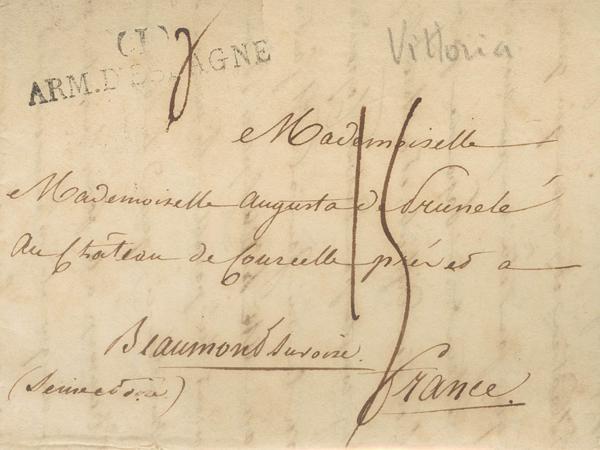 (1)
ARM. D'ESPAGNE
Vittoria
Mademoiselle
Mademoiselle Augusta de Prunelé
Au Château de Courcelle près et a
Beaumont Sur oise.
(Seine et oise)
France.
15